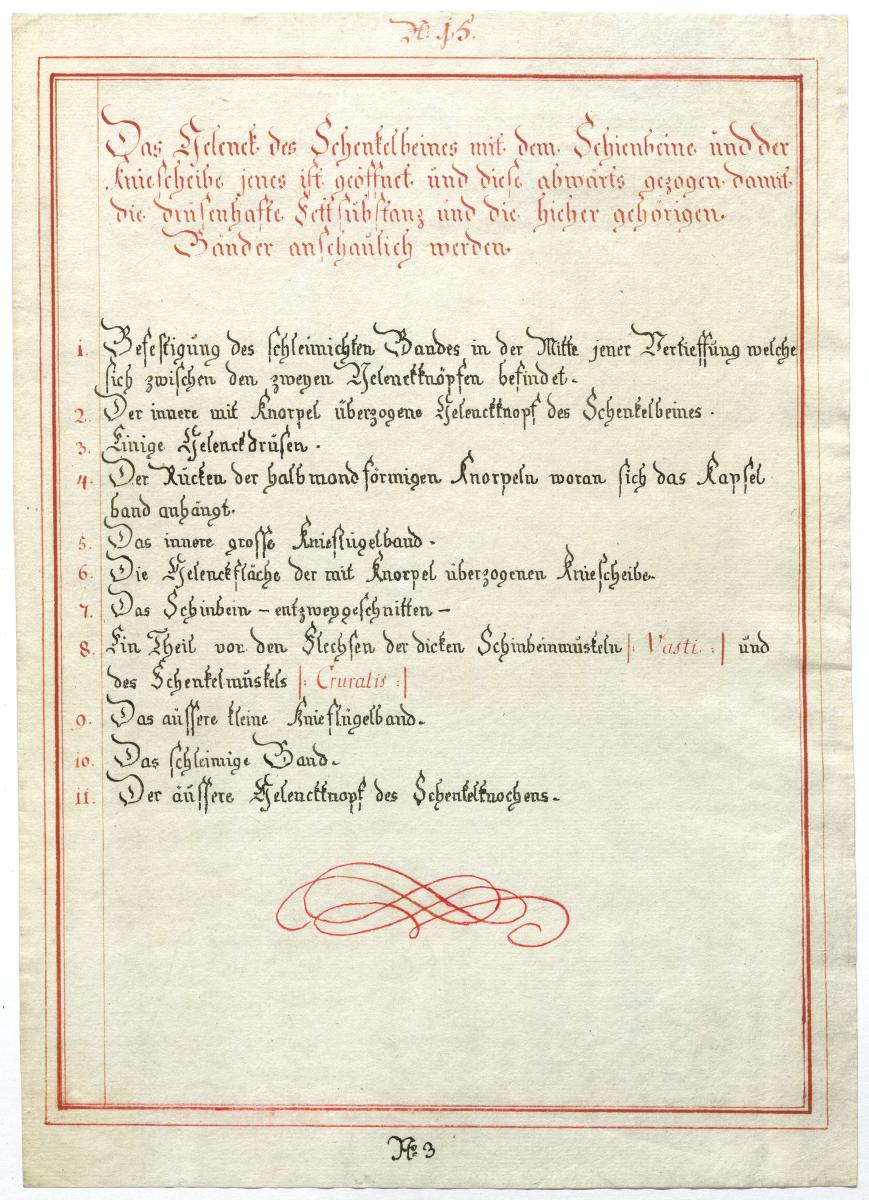 N: 15.
Das Gelenck des Schenkelbeines mit dem Schienbeine und der
Kniescheibe jenes ist geöffnet und diese abwärts gezogen damit
die drüsenhafte Fettsubstanz und die hieher gehörigen
Bänder anschaulich werden.
1. Befestigung des schleimichten Bandes in der Mitte jener Vertieffung welche
sich zwischen den zweyen Gelenckknöpfen befindet.
2. Der innere mit Knorpel überzogene Gelenckknopf des Schenkelbeines.
3. Einige Gelenckdrüsen.
4. Der Rücken der halbmondförmigen Knorpeln woran sich das Kapsel
band anhängt.
5. Das innere grosse Knieflügelband.
6. Die Gelenckfläche der mit Knorpel überzogenen Kniescheibe.
7. Das Schinbein – entzweygeschnitten –
8. Ein Theil von den Flechsen der dicken Schinbeinmuskeln |: Vasti :| und
des Schenkelmuskels |: Cruralis :|
9. Das äussere kleine Knieflügelband.
10. Das schleimige Band.
11. Der äussere Gelenckknopf des Schenkelknochens.
No 3